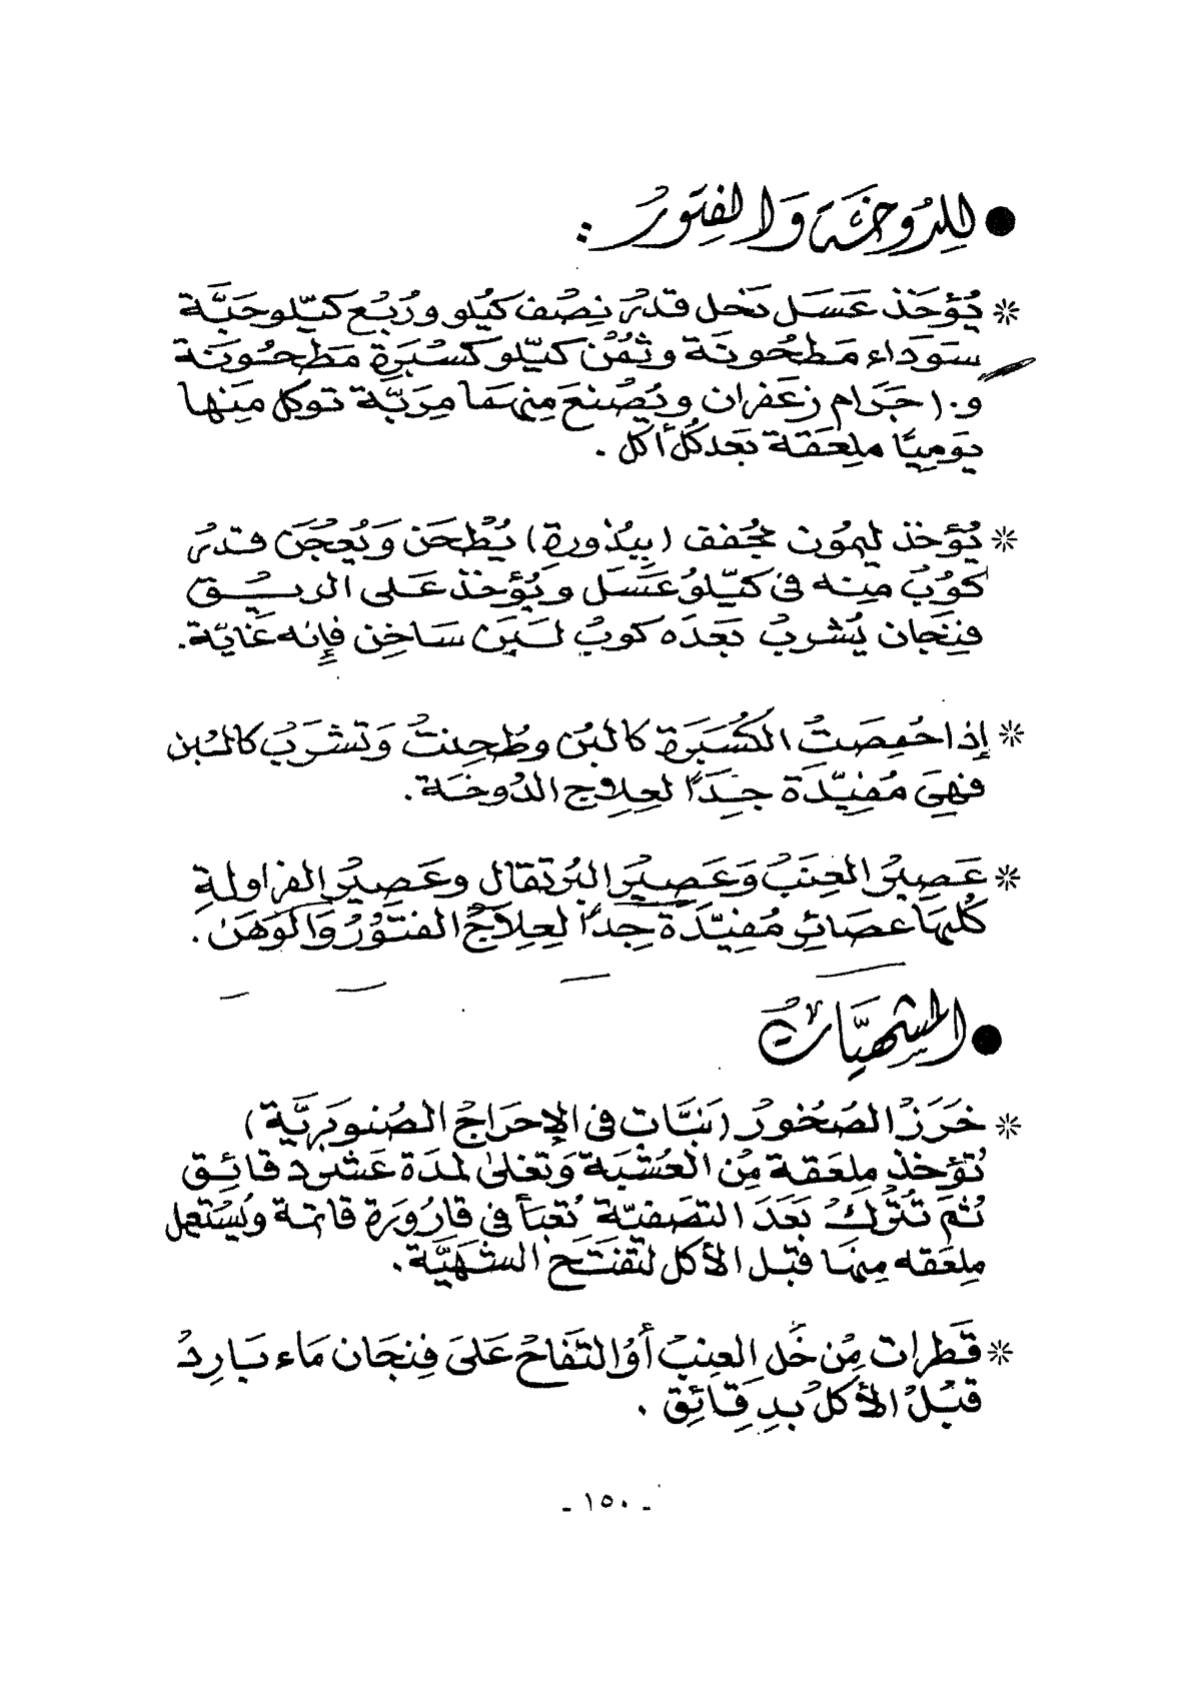 ● للدوخة والفتور :
* يؤخذ عسل نحل قدر نصف كيلو وربع كيلو حبة
سوداء مطحونة وثمن كيلو كسبرة مطحونة
و١٠ جرام زعفران ويصنع منهما مربة توكل منها
يوميا ملعقة بعد كل أكل .
* يؤخذ ليمون مجفف (ببذوره) يطحن ويعجن قدر
كوب منه في كيلو عسل ويؤخذ على الريق
فنجان يشرب بعده كوب لبن ساخن فإنه غاية.
* إذا حمصت الكسبرة كالبن وطحنت وتشرب كالبن
فهي مفيدة جدا لعلاج الدوخة.
* عصير العنب وعصير البرتقال وعصير الفراولة
كلها عصائر مفيدة جدا لعلاج الفتور والوهن .
● المشهيات
* خرز الصخور (نبات في الإحراج الصنوبرية)
تؤخذ ملعقة من العشبة وتغلى لمدة عشر دقائق
ثم تترك بعد التصفية تعبأ في قارورة قاتمة ويستعمل
ملعقه منها قبل الأكل لتفتح الشهية.
* قطرات من خل العنب أو التفاح على فنجان ماء بارد
قبل الأكل بدقائق .
- ١٥٠ -